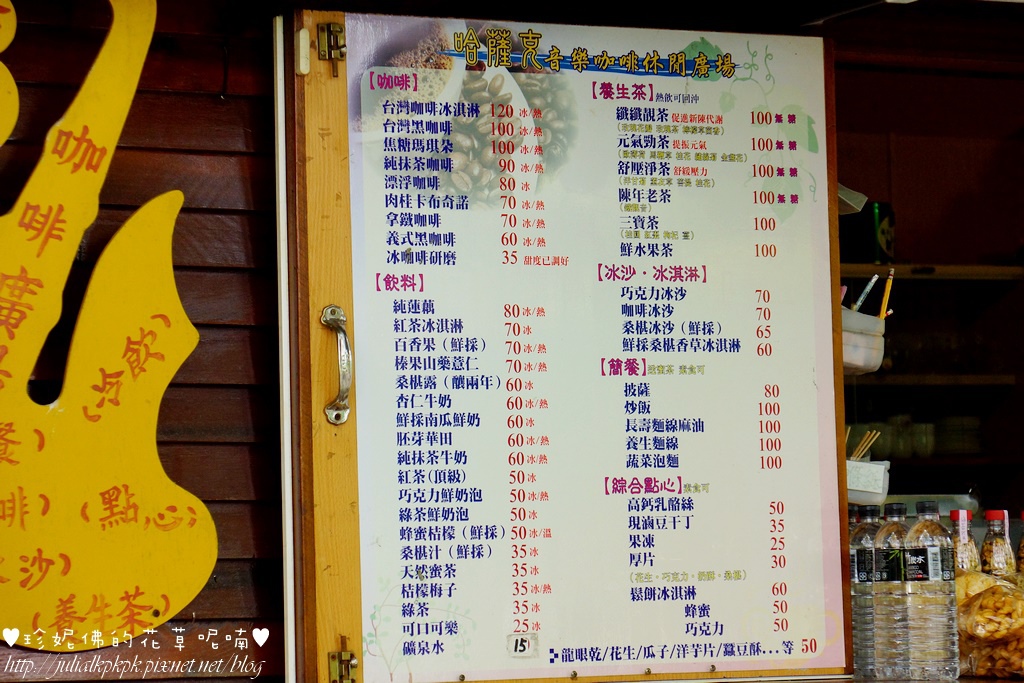 哈薩克音樂咖啡休閒廣場
【咖啡】
台灣咖啡冰淇淋 120 冰/熱
台灣黑咖啡 100 冰/熱
焦糖瑪琪朵 100 冰/熱
純抹茶咖啡 90 冰/熱
漂浮咖啡 80 冰
肉桂卡布奇諾 70 冰/熱
拿鐵咖啡 70 冰/熱
義式黑咖啡 60 冰/熱
冰咖啡研磨 35 甜度已調好
【飲料】
純蓮藕 80 冰/熱
紅茶冰淇淋 70 冰
百香果(鮮採) 70 冰/熱
榛果山藥薏仁 70 冰/熱
桑椹露(釀兩年) 60 冰
杏仁牛奶 60 冰/熱
鮮採南瓜鮮奶 60 冰
胚芽華田 60 冰/熱
純抹茶牛奶 60 冰/熱
紅茶(頂級) 50 冰
巧克力鮮奶泡 50 冰/熱
綠茶鮮奶泡 50 冰
蜂蜜桔檬(鮮採) 50 冰/溫
桑椹汁(鮮採) 35 冰
天然蜜茶 35 冰
桔檬梅子 35 冰/熱
綠茶 35 冰
可口可樂 25 冰
礦泉水 15
【養生茶】熱飲可回沖
纖纖靚茶 促進新陳代謝 100 無糖
元氣勁茶 提振元氣 100 無糖
舒壓淨茶 舒緩壓力 100 無糖
陳年老茶 100 無糖
三寶茶 100
鮮水果茶 100
【冰沙・冰淇淋】
巧克力冰沙 70
咖啡冰沙 70
桑椹冰沙(鮮採) 65
鮮採桑椹香草冰淇淋 60
【簡餐】 素食可
披薩 80
炒飯 100
長壽麵線麻油 100
養生麵線 100
蔬菜泡麵 100
【綜合點心】素食可
高鈣乳酪絲 50
現滷豆干丁 35
果凍 25
厚片 30
鬆餅冰淇淋 60
蜂蜜 50
巧克力 50
龍眼乾/花生/瓜子/洋芋片/蠶豆酥...等 50
咖啡廣
(冷飲)
餐)
啡)
(點心)
沙)
(養生茶)
♥珍妮佛的花草呢喃♥
http://julialkpkpk.pixnet.net/blog